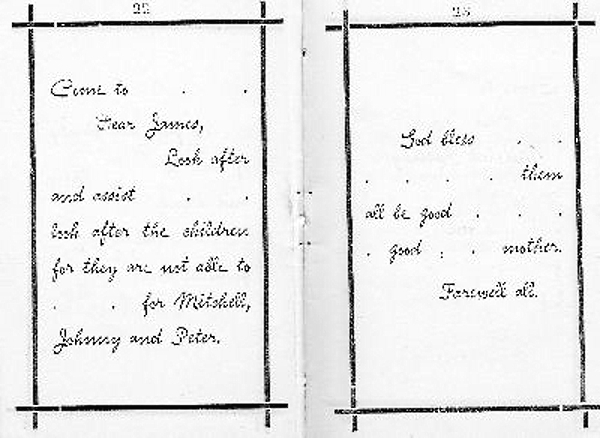 22
Come to . .
Dear James,
Look after
and assist . .
look after the children
for they are not able to
. . for Mitchell,
Johnny and Peter.
23
God bless . .
. . . . them
all be good . . .
. good . . mother.
Farewell all.